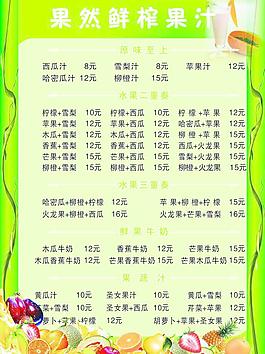 果然鲜榨果汁
原味至上
西瓜汁 8元 雪梨汁 8元 苹果汁 12元
哈密瓜汁 12元 柳橙汁 12元
水果二重奏
柠檬+雪梨 10元 柠檬+西瓜 10元 柠檬+苹果 12元
苹果+雪梨 12元 苹果+西瓜 12元 柳橙+苹果 12元
木瓜+雪梨 12元 木瓜+柳橙 12元
香蕉+雪梨 12元 香蕉+苹果 12元 西瓜+火龙果
芒果+雪梨 15元 芒果+柳橙 15元 雪梨+火龙果
芒果+香蕉 15元 芒果+西瓜 15元 苹果+火龙果
水果三重奏
哈密瓜+柳橙+柠檬 12元 苹果+柳橙+柠檬 15元
火龙果+柳橙+西瓜 16元 火龙果+芒果+雪梨 16元
鲜果牛奶
木瓜牛奶 12元 香蕉牛奶 12元 芒果牛奶 15元
木瓜香蕉牛奶 15元 芒果木瓜牛奶 15元
果蔬汁
黄瓜汁 8元 圣女果汁 8元
黄瓜+雪梨 10元 圣女果+西瓜 10元 芹菜+苹果 12元
胡萝卜+苹果 12元